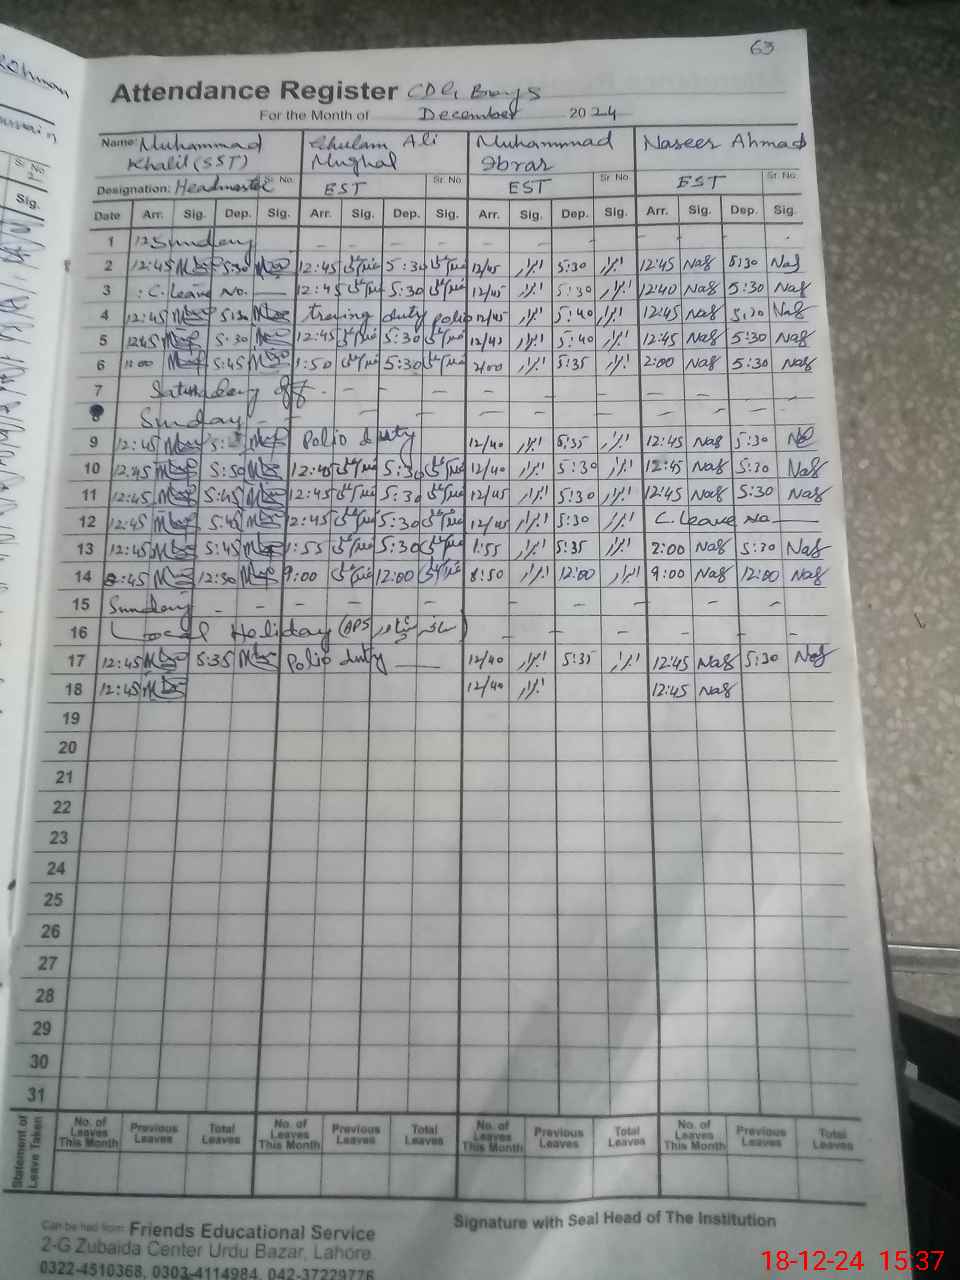 63
Attendance Register
For the Month of December 2024
Name: Muhammad Khalil (SST) Ghulam Ali Mughal Muhammad Ibrar Naseer Ahmad
Designation: Headmaster Sr. No. EST Sr. No. EST Sr. No. EST Sr. No.
Date Arr. Sig. Dep. Sig. Arr. Sig. Dep. Sig. Arr. Sig. Dep. Sig. Arr. Sig. Dep. Sig.
1 Sunday
2 12:45 5:30 12:45 5:30 12/45 ابرار 5:30 ابرار 12:45 Nas 5:30 Nas
3 C. Leave No. 12:45 5:30 12/45 ابرار 5:30 ابرار 12:40 Nas 5:30 Nas
4 12:45 5:30 duty polio 12/45 ابرار 5:40 ابرار 12:45 Nas 5:30 Nas
5 12:45 5:30 12:45 5:30 12/45 ابرار 5:40 ابرار 12:45 Nas 5:30 Nas
6 5:45 1:50 5:30 2/00 ابرار 5:35 ابرار 2:00 Nas 5:30 Nas
7 Saturday off
8 Sunday
9 12:45 Polio duty 12/40 ابرار 5:35 ابرار 12:45 Nas 5:30
10 12:45 5:50 12:45 5:30 12/40 ابرار 5:30 ابرار 12:45 Nas 5:30 Nas
11 12:45 5:45 12:45 5:30 12/45 ابرار 5:30 ابرار 12:45 Nas 5:30 Nas
12 12:45 5:45 12:45 5:30 12/45 ابرار 5:30 ابرار C. Leave No
13 12:45 5:45 1:55 5:30 1:55 ابرار 5:35 ابرار 2:00 Nas 5:30 Nas
14 8:45 12:30 9:00 12:00 8:50 ابرار 12:00 ابرار 9:00 Nas 12:00 Nas
15 Sunday
16 Local Holiday (APS سانحہ پشاور)
17 12:45 5:35 Polio duty 12/40 ابرار 5:35 ابرار 12:45 Nas 5:30 Nas
18 12:45 12/40 ابرار 12:45 Nas
19
20
21
22
23
24
25
26
27
28
29
30
31
Statement of Leave Taken
No. of Leaves This Month Previous Leaves Total Leaves No. of Leaves This Month Previous Leaves Total Leaves No. of Leaves This Month Previous Leaves Total Leaves No. of Leaves This Month Previous Leaves Total Leaves
Can be had from: Friends Educational Service
2-G Zubaida Center Urdu Bazar, Lahore.
0322-4510368, 0303-4114984, 042-37229776
Signature with Seal Head of The Institution
18-12-24 15:37